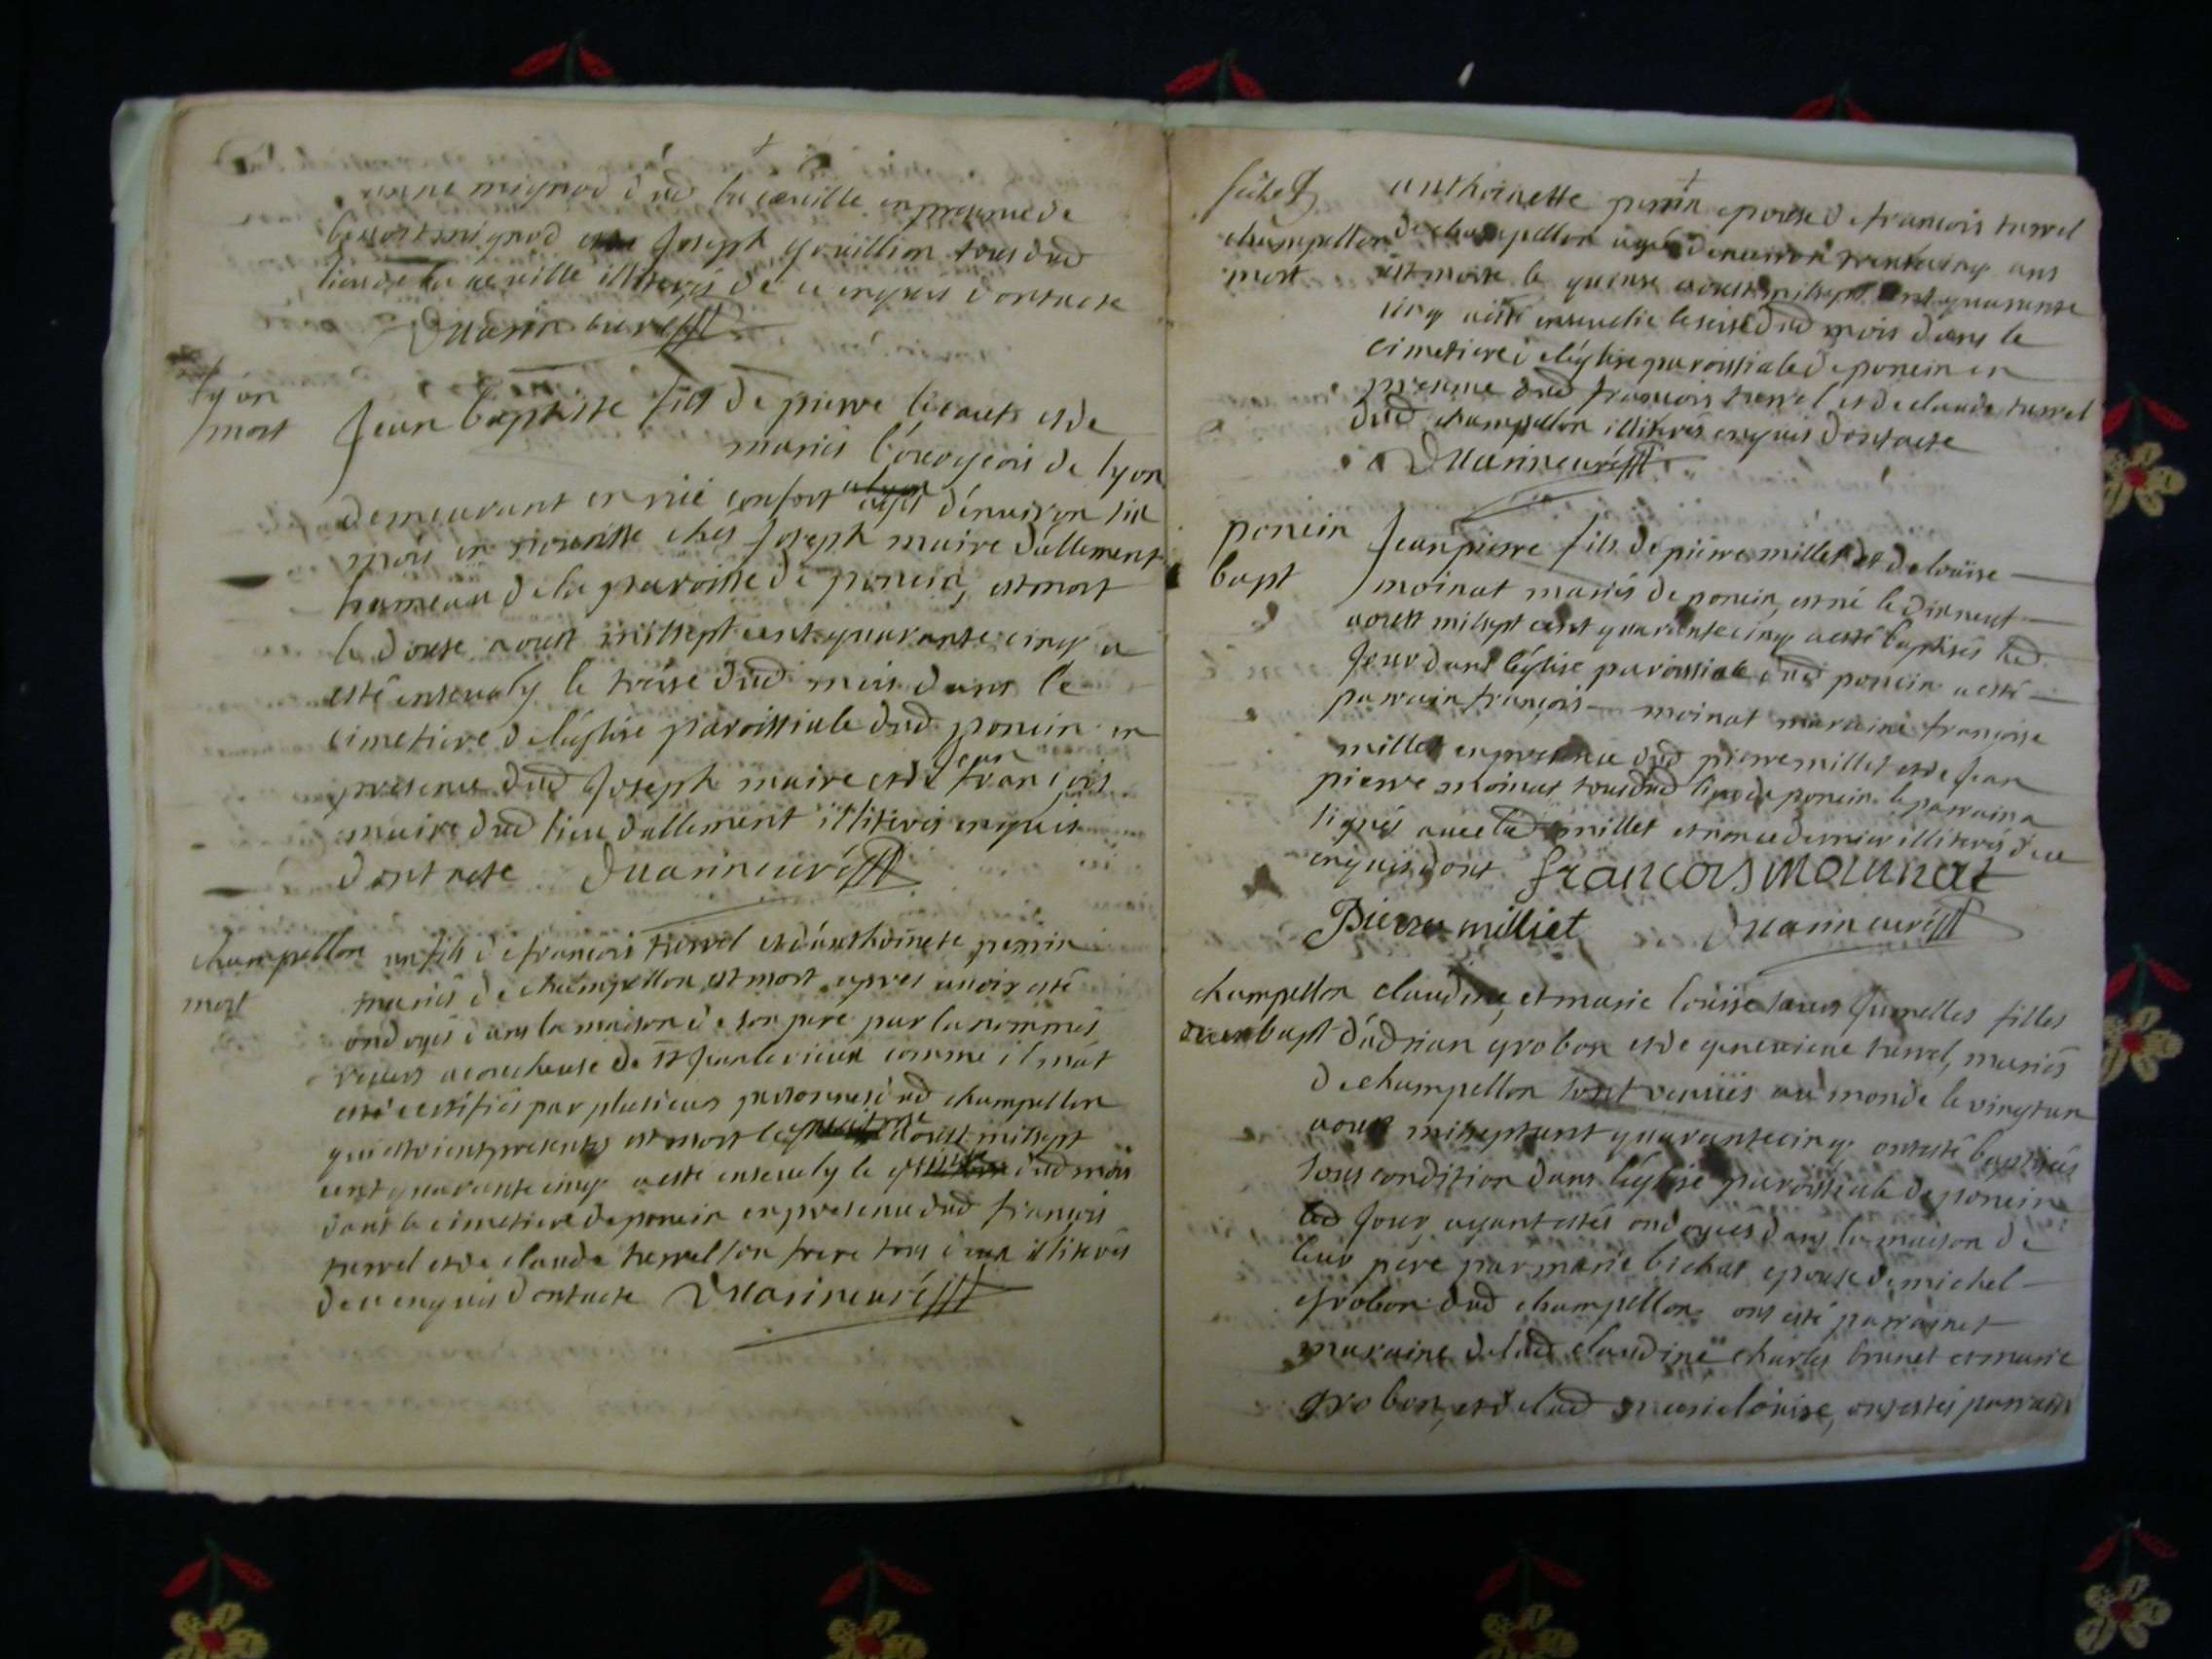 mignod dud la cueille en presence de
benoit mignod et de Joseph gouillion tous dud
lieu de la cueille illiterés de ce enquis dont acte
Duarin curé
lyon
mort
Jean baptiste fils de pierre et de
mariés bourgeois de lyon
demeurant en rüe confort agé d'environ six
mois en nourisse chés Joseph maire d'allement
hameau de la paroisse de poncin, est mort
le douse aoust mil sept cent quarante cinq a
esté ensevely le treise dud mois dans le
cimetiere de l'église paroissiale dud poncin en
presence dud Joseph maire et de Jean françois
maire dud lieu d'allement illiterés enquis
dont acte Duarin curé
champellon
mort
un fils de francois turrel et d'anthoinete perrin
mariés de champellon est mort apres avoir esté
ondoyés dans la maison de son pere par la nommés
acoucheuse de st Jean le vieux comme il m'at
esté certifiés par plusieurs personnes dud champellon
qui estoient presents est mort le aoust mil sept
cent quarante cinq a esté ensevely le dud mois
dans le cimetiere de poncin en presence dud françois
turrel et de claude turrel son frere tous deux illiterés
de ce enquis dont acte Duarin curé
champellon
mort
anthoinette perrin epouse de francois turrel
de champellon agée d'environ trente cinq ans
est morte le quinse aoust mil sept cent quarante
cinq a esté ensevelie le seise dud mois dans le
cimetiere de l'église paroissiale de poncin en
presence dud françois turrel et de claude turrel
dud champellon illiterés enquis dont acte
Duarin curé
poncin
bapt
Jean pierre fils de pierre millet et de loüise
moinat mariés de poncin, est né le dix neuf
aoust mil sept cent quarante cinq a esté baptisés led
Jour dans l'église paroissiale dud poncin a esté
parrain françois moinat maraine françoise
millet en presence dud pierre millet et de Jean
pierre moinat tous dud lieu de poncin le parrain a
signés avec led millet et non ce dernier illiterés de ce
enquis dont francois mounat
Pierre milliet Duarin curé
champellon
bapt
claudine, et marie loüise sœurs Jumelles filles
d'adrian grobon et de genevieve turrel, mariés
de champellon sont venüës au monde le vingt un
aoust mil sept cent quarante cinq ont esté baptisés
sous condition dans l'église paroissiale de poncin
led Jour, ayant estés ondoyées dans la maison de
leur pere par marie bichat epouse de michel
grobon dud champellon ont esté parrain et
maraine de lad claudine charles brunet et marie
grobon, et de lad marie loüise, ont estés parrain